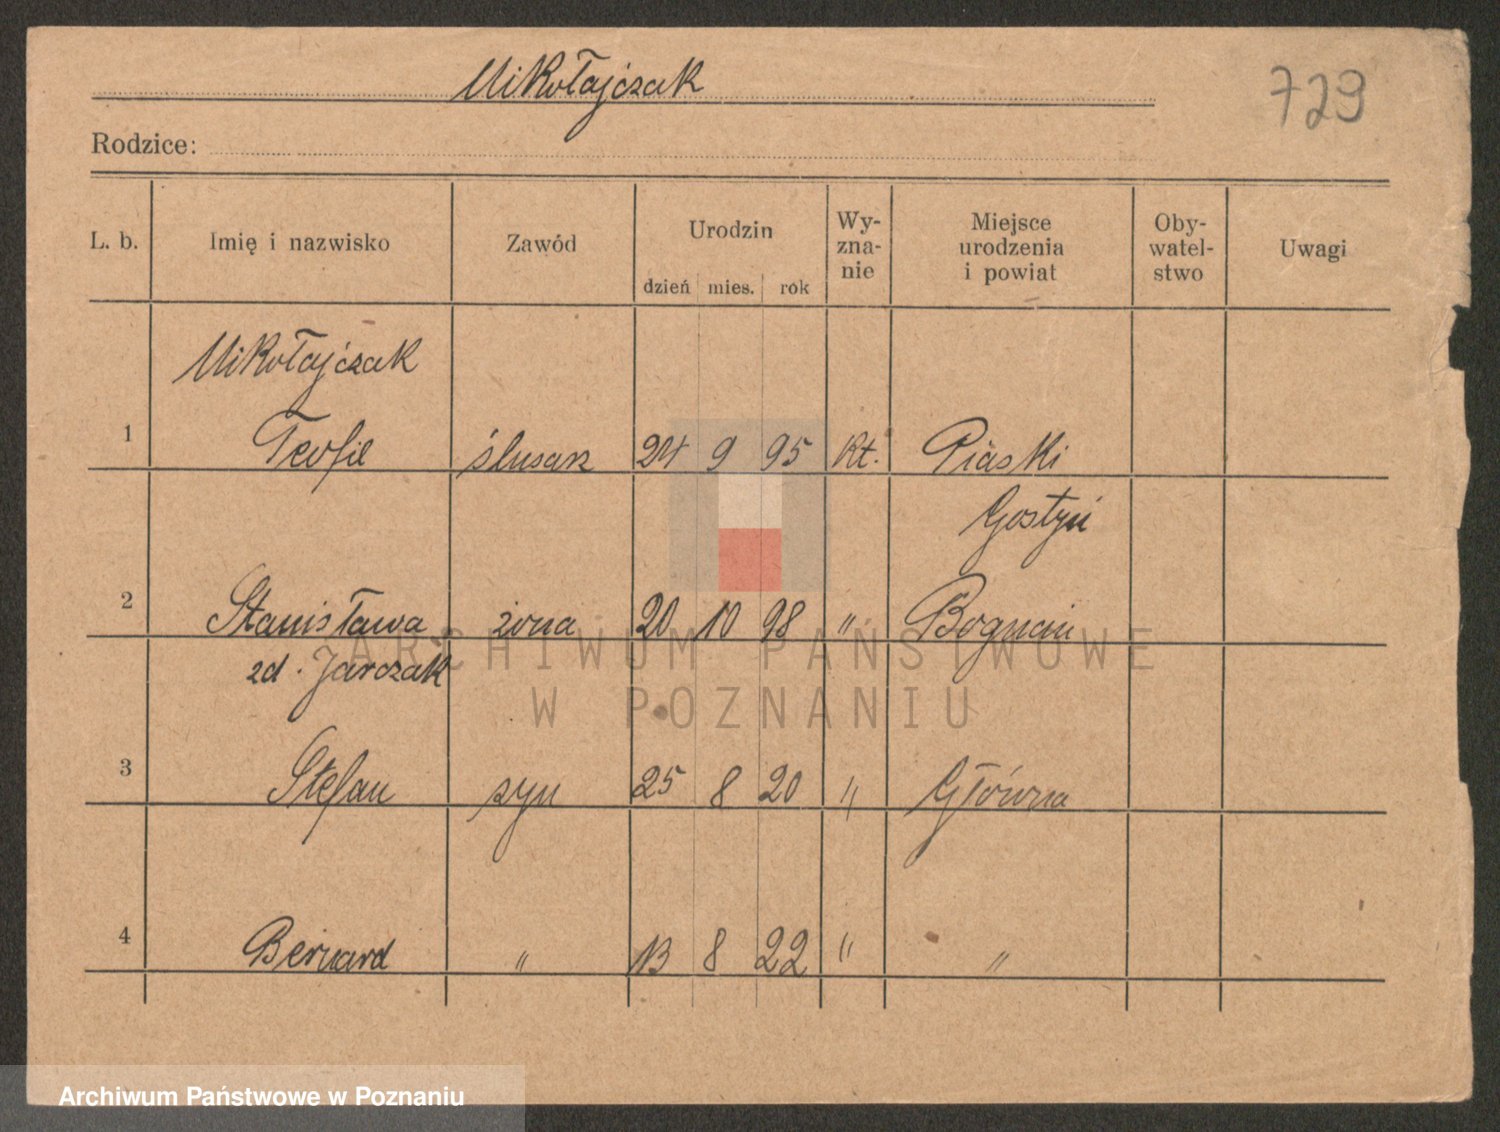 Mikołajczak
729
Rodzice:
L. b. Imię i nazwisko Zawód Urodzin dzień mies. rok Wy-zna-nie Miejsce urodzenia i powiat Oby-watel-stwo Uwagi
Mikołajczak
1 Teofil ślusarz 24 9 95 Kt. Piaski
Gostyń
2 Stanisława żona 20 10 98 "
zd. Jarczak
3 Stefan syn 25 8 20 " Główna
4 Bernard " 13 8 22 " "
ARCHIWUM PAŃSTWOWE
W POZNANIU
Archiwum Państwowe w Poznaniu